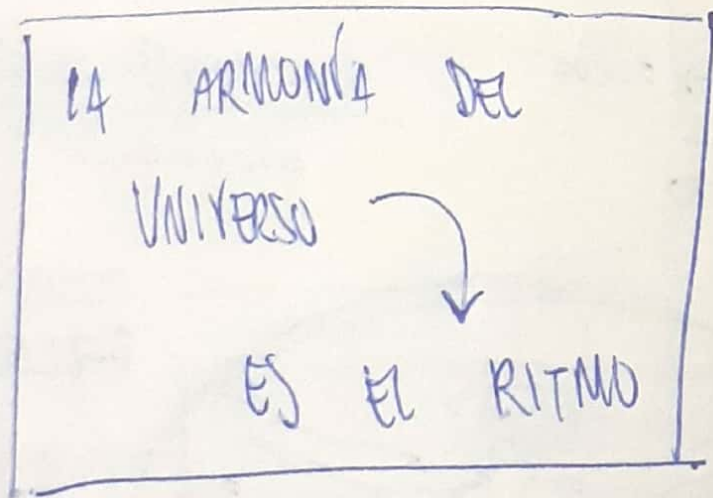 LA ARMONÍA DEL
UNIVERSO
ES EL RITMO